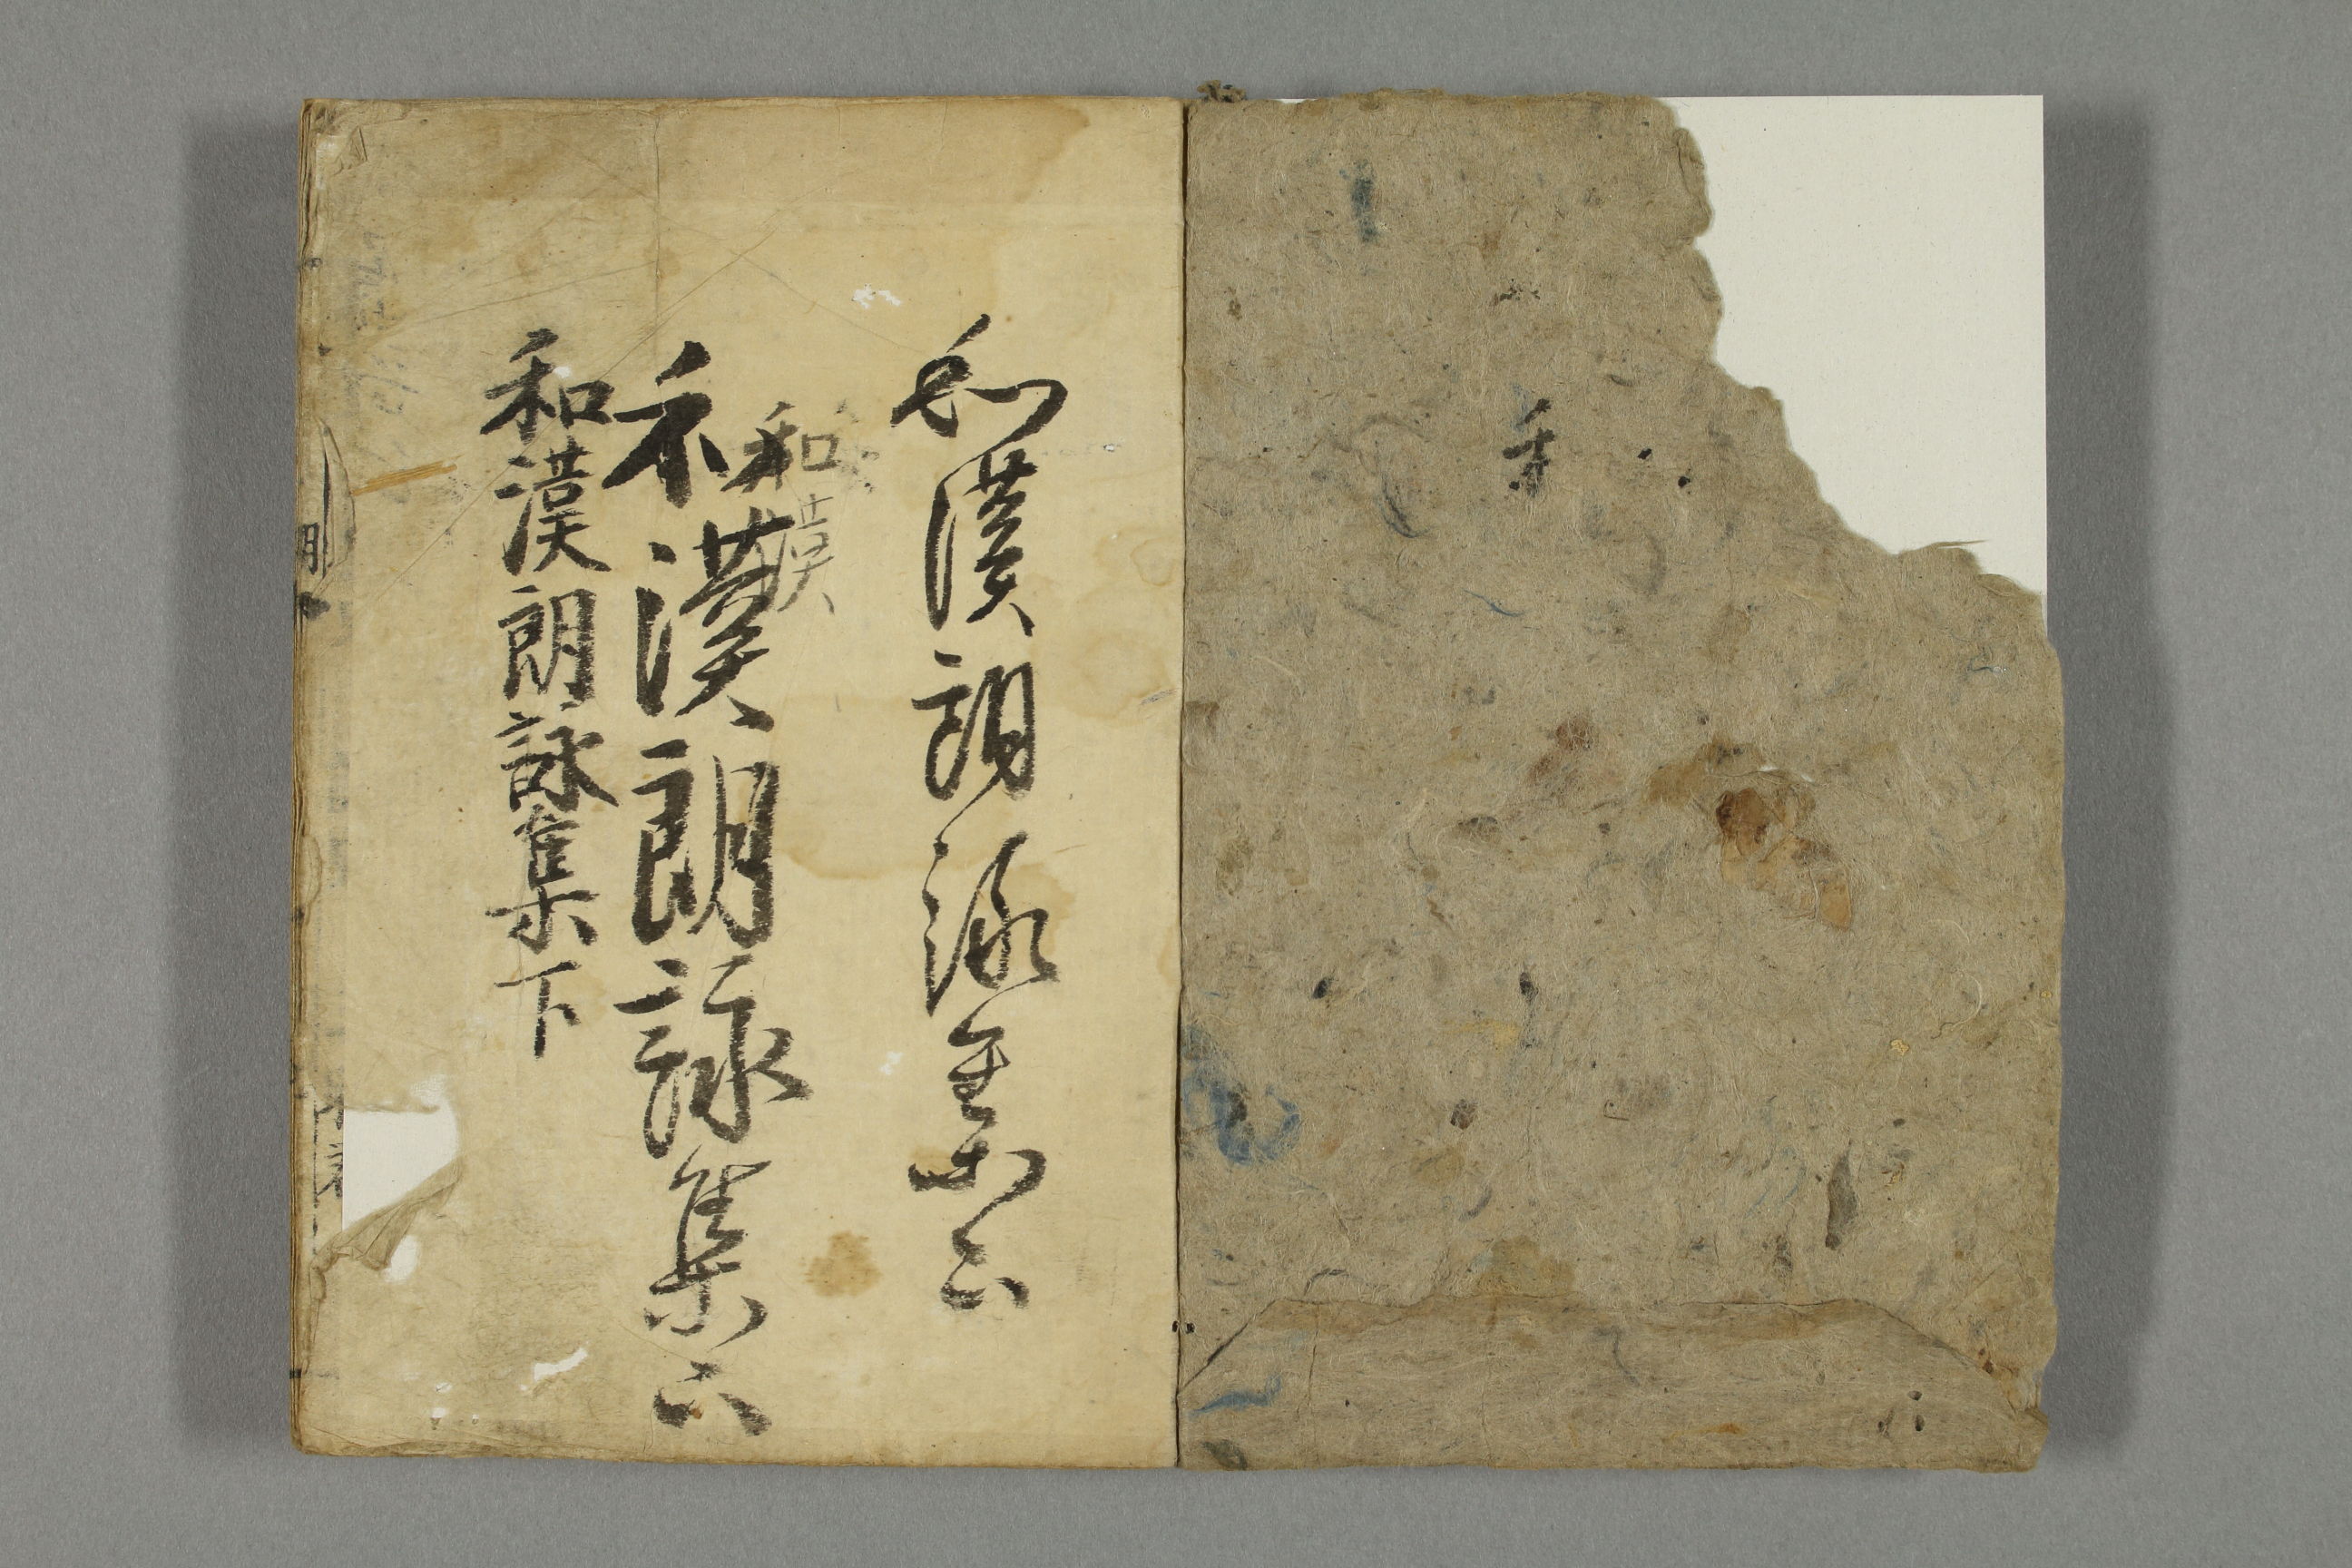 禾
和漢朗詠集下
和漢
禾漢朗詠集下
和漢朗詠集下